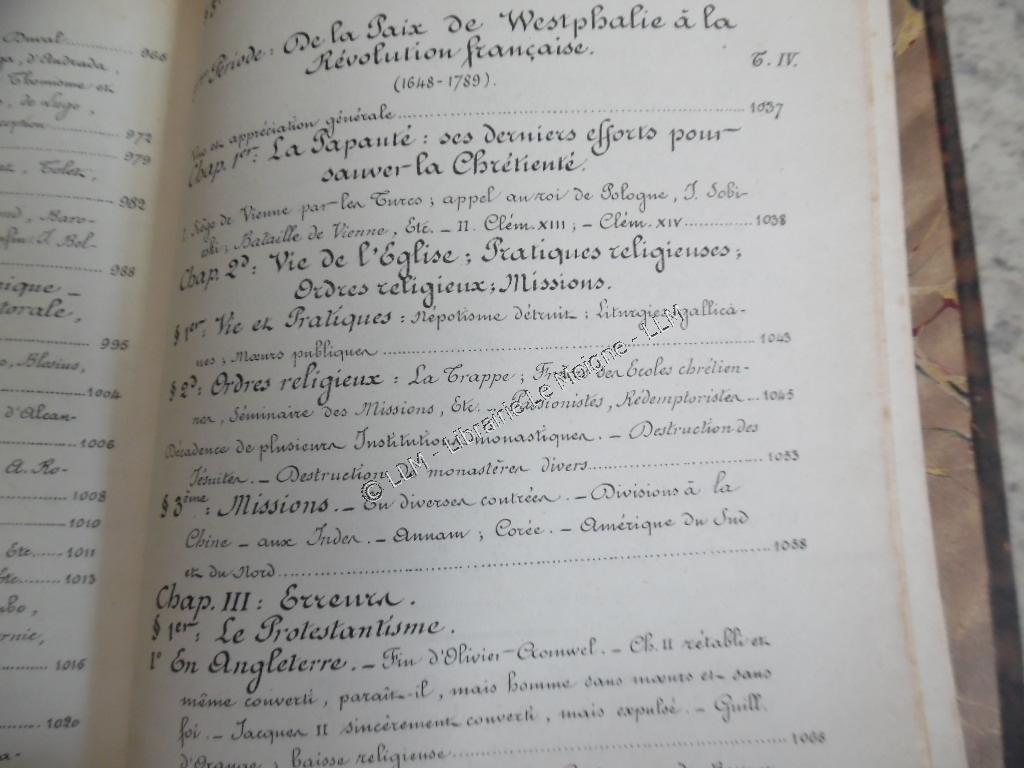 Duval 966
d'Andrada,
Thomisme et
de Lugo,
ception 972
979
et, Tolet,
982
Baro-
J. Bol-
988
nique –
torale,
995
Blasius,
1004
d'Alcan-
1006
A. Ro-
1008
1010
Etc 1011
Etc 1013
1016
1020
Période : De la Paix de Westphalie à la
Révolution française.
(1648-1789). T. IV.
Vue et appréciation générale 1037
Chap. 1er: La Papauté : ses derniers efforts pour
sauver la Chrétienté.
I. Siège de Vienne par les Turcs ; appel au roi de Pologne, J. Sobi-
eski ; Bataille de Vienne, Etc. – II. Clém. XIII ; – Clém. XIV 1038
Chap. 2d: Vie de l'Eglise ; Pratiques religieuses ;
Ordres religieux ; Missions.
§ 1er: Vie et Pratiques : Népotisme détruit ; Liturgies gallica-
nes ; Mœurs publiques 1043
§ 2d: Ordres religieux : La Trappe ; Frères des Ecoles chrétien-
nes, Séminaire des Missions, Etc. – Passionistes, Rédemptoristes 1045
Décadence de plusieurs Institutions monastiques. – Destruction des
Jésuites. – Destruction de monastères divers 1053
§ 3ème: Missions. – En diverses contrées. – Divisions à la
Chine – aux Indes. – Annam ; Corée. – Amérique du Sud
et du Nord 1058
Chap. III : Erreurs.
§ 1er: Le Protestantisme.
1° En Angleterre. – Fin d'Olivier Cromwel. – Ch. II rétabli et
même converti, paraît-il, mais homme sans mœurs et sans
foi. – Jacques II sincèrement converti, mais expulsé. – Guill.
d'Orange ; baisse religieuse 1068
© LDM - Librairie Le Moigne - LLM